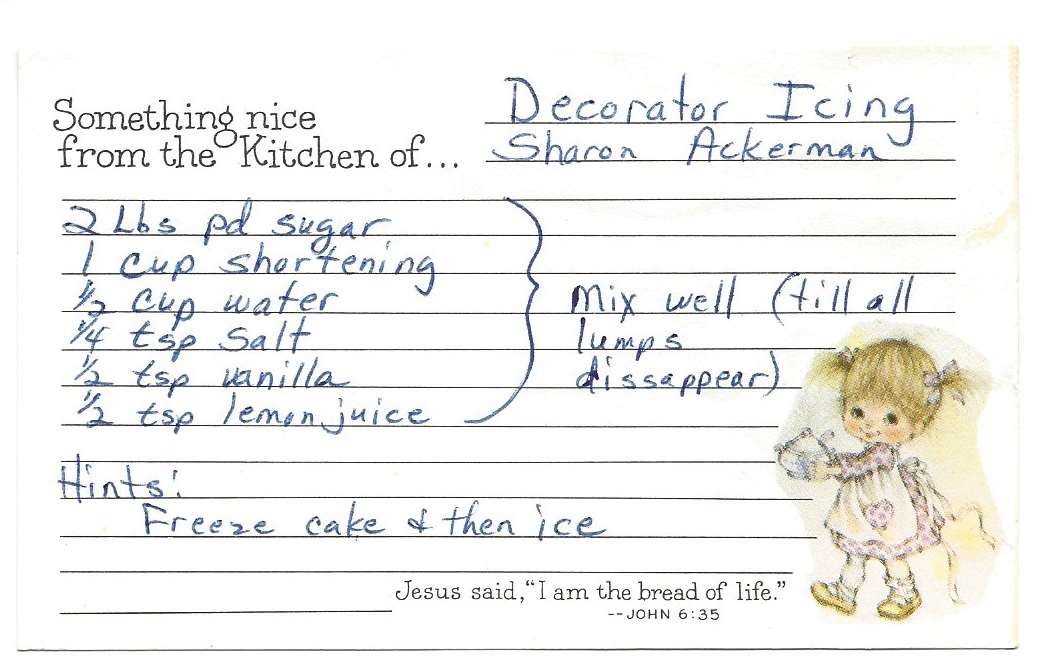 Something nice
from the Kitchen of...
Decorator Icing
Sharon Ackerman
2 Lbs pd sugar
1 cup shortening
1/2 cup water
1/4 tsp salt
1/2 tsp vanilla
1/2 tsp lemon juice
Mix well (till all
lumps
dissappear)
Hints:
Freeze cake & then ice
Jesus said, "I am the bread of life."
--JOHN 6:35